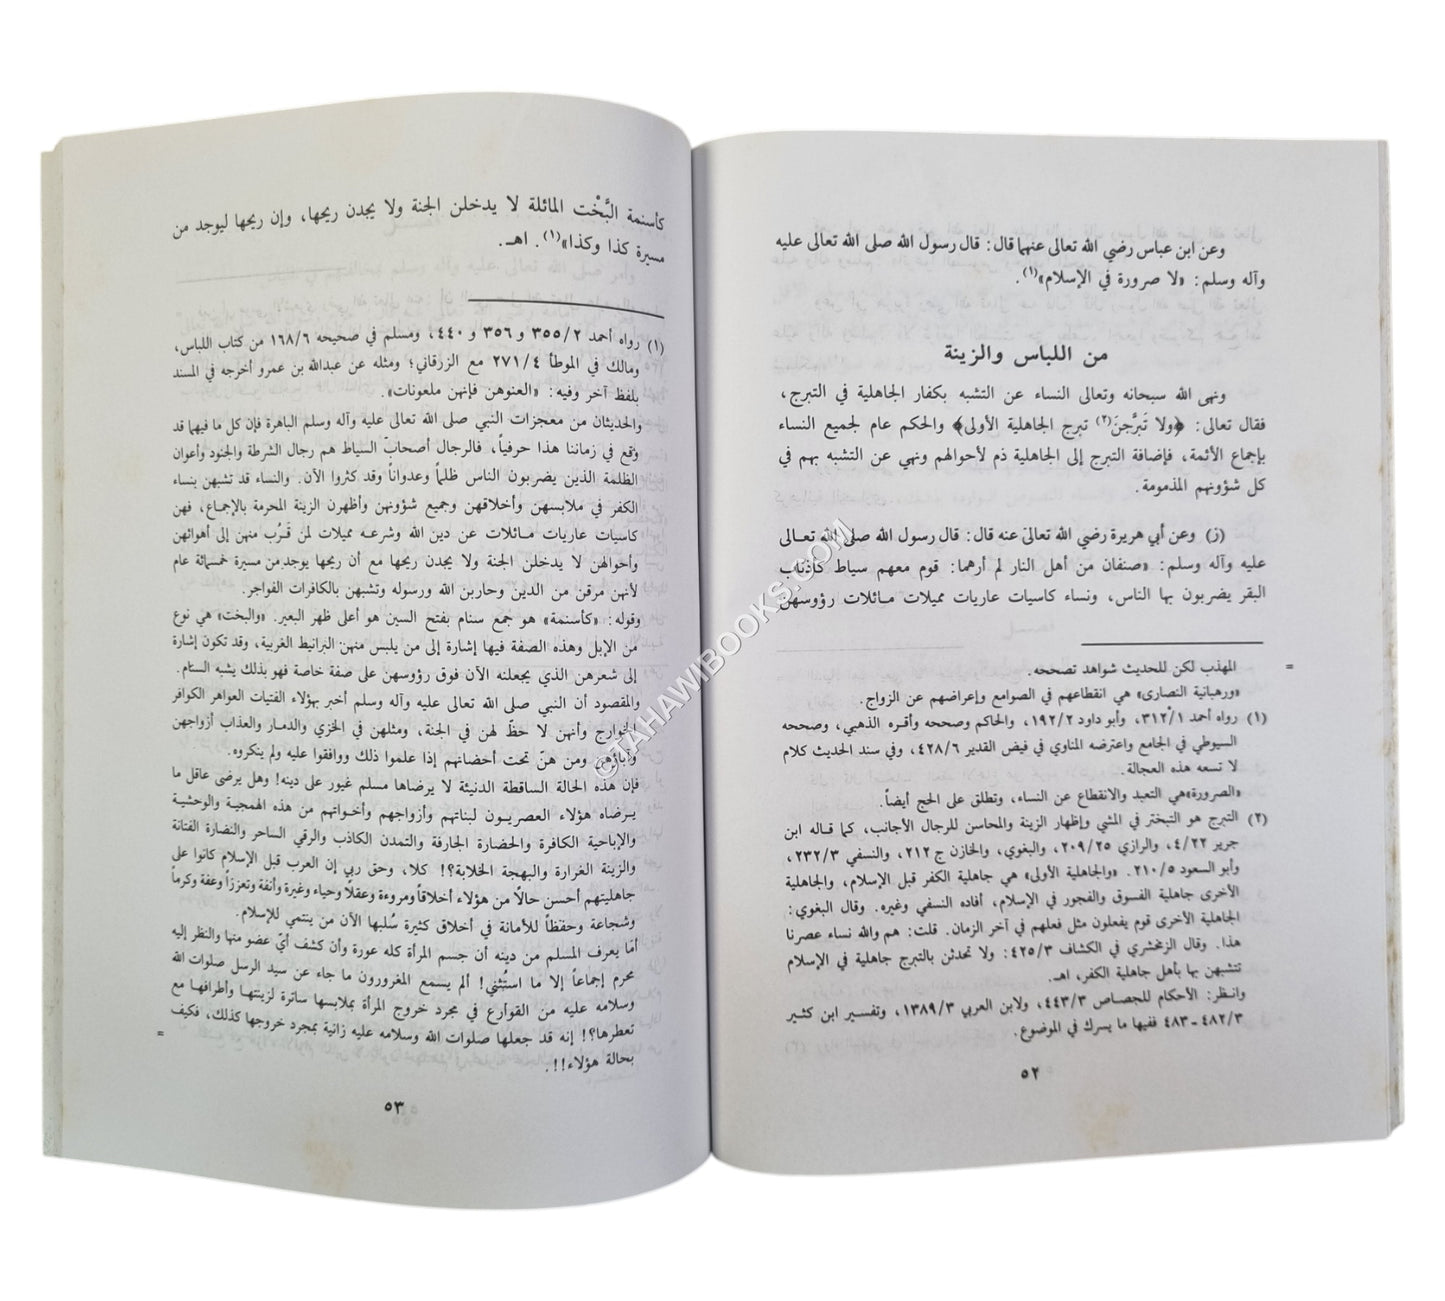 وعن ابن عباس رضي الله تعالى عنهما قال: قال رسول الله صلى الله تعالى عليه
وآله وسلم: «لا صرورة في الإسلام»(١).
من اللباس والزينة
ونهى الله سبحانه وتعالى النساء عن التشبه بكفار الجاهلية في التبرج،
فقال تعالى: ﴿ولا تَبرَّجنَ(٢) تبرج الجاهلية الأولى﴾ والحكم عام لجميع النساء
بإجماع الأئمة، فإضافة التبرج إلى الجاهلية ذم لأحوالهم ونهي عن التشبه بهم في
كل شؤونهم المذمومة.
(ز) وعن أبي هريرة رضي الله تعالى عنه قال: قال رسول الله صلى الله تعالى
عليه وآله وسلم: «صنفان من أهل النار لم أرهما: قوم معهم سياط كأذناب
البقر يضربون بها الناس، ونساء كاسيات عاريات مميلات مائلات رؤوسهن
= المهذب لكن للحديث شواهد تصححه.
«ورهبانية النصارى» هي انقطاعهم في الصوامع وإعراضهم عن الزواج.
(١) رواه أحمد ٣١٢/١، وأبو داود ١٩٢/٢، والحاكم وصححه وأقره الذهبي، وصححه
السيوطي في الجامع واعترضه المناوي في فيض القدير ٤٢٨/٦، وفي سند الحديث كلام
لا تسعه هذه العجالة.
«الصرورة»هي التعبد والانقطاع عن النساء، وتطلق على الحج أيضاً.
(٢) التبرج هو التبختر في المشي وإظهار الزينة والمحاسن للرجال الأجانب، كما قاله ابن
جرير ٤/٢٢، والرازي ٢٠٩/٢٥، والبغوي، والخازن ج ٢١٢، والنسفي ٢٣٢/٣،
وأبو السعود ٢١٠/٥. «والجاهلية الأولى» هي جاهلية الكفر قبل الإسلام، والجاهلية
الأخرى جاهلية الفسوق والفجور في الإسلام، أفاده النسفي وغيره. وقال البغوي:
الجاهلية الأخرى قوم يفعلون مثل فعلهم في آخر الزمان. قلت: هم والله نساء عصرنا
هذا. وقال الزمخشري في الكشاف ٤٢٥/٣: ولا تحدثن بالتبرج جاهلية في الإسلام
تتشبهن بها بأهل جاهلية الكفر، اهـ.
وانظر: الأحكام للجصاص ٤٤٣/٣، ولابن العربي ١٣٨٩/٣، وتفسير ابن كثير
٤٨٢/٣-٤٨٣ ففيها ما يسرك في الموضوع.
٥٢
كأسنمة البَّخْت المائلة لا يدخلن الجنة ولا يجدن ريحها، وإن ريحها ليوجد من
مسيرة كذا وكذا»(١). اهـ.
(١) رواه أحمد ٣٥٥/٢ و ٣٥٦ و ٤٤٠، ومسلم في صحيحه ١٦٨/٦ من كتاب اللباس،
ومالك في الموطأ ٢٧١/٤ مع الزرقاني؛ ومثله عن عبدالله بن عمرو أخرجه في المسند
بلفظ آخر وفيه: «العنوهن فإنهن ملعونات».
والحديثان من معجزات النبي صلى الله تعالى عليه وآله وسلم الباهرة فإن كل ما فيهما قد
وقع في زماننا هذا حرفياً، فالرجال أصحاب السياط هم رجال الشرطة والجنود وأعوان
الظلمة الذين يضربون الناس ظلماً وعدواناً وقد كثروا الآن. والنساء قد تشبهن بنساء
الكفر في ملابسهن وأخلاقهن وجميع شؤونهن وأظهرن الزينة المحرمة بالإجماع، فهن
كاسيات عاريات مائلات عن دين الله وشرعه مميلات لمن قَرُب منهن إلى أهوائهن
وأحوالهن لا يدخلن الجنة ولا يجدن ريحها مع أن ريحها يوجد من مسيرة خمسمائة عام
لأنهن مرقن من الدين وحاربن الله ورسوله وتشبهن بالكافرات الفواجر.
وقوله: «كأسنمة» هو جمع سنام بفتح السين هو أعلى ظهر البعير. «والبخت» هي نوع
من الإبل وهذه الصفة فيها إشارة إلى من يلبس منهن البرانيط الغربية، وقد تكون إشارة
إلى شعرهن الذي يجعلنه الآن فوق رؤوسهن على صفة خاصة فهو بذلك يشبه السنام.
والمقصود أن النبي صلى الله تعالى عليه وآله وسلم أخبر بهؤلاء الفتيات العواهر الكوافر
الخوارج وأنهن لا حظّ لهن في الجنة، ومثلهن في الخزي والدمار والعذاب أزواجهن
وآباؤهن ومن هنّ تحت أحضانهم إذا علموا ذلك ووافقوا عليه ولم ينكروه.
فإن هذه الحالة الساقطة الدنيئة لا يرضاها مسلم غيور على دينه! وهل يرضى عاقل ما
يرضاه هؤلاء العصريون لبناتهم وأزواجهم وأخواتهم من هذه الهمجية والوحشية
والإباحية الكافرة والحضارة الجارفة والتمدن الكاذب والرقي الساحر والنضارة الفتانة
والزينة الغرارة والبهجة الخلابة؟! كلا، وحق ربي إن العرب قبل الإسلام كانوا على
جاهليتهم أحسن حالاً من هؤلاء أخلاقاً ومروءة وعقلاً وحياء وغيرة وأنفة وتعززاً وعفة وكرماً
وشجاعة وحفظاً للأمانة في أخلاق كثيرة سُلبها الآن من ينتمي للإسلام.
أمَا يعرف المسلم من دينه أن جسم المرأة كله عورة وأن كشف أيّ عضو منها والنظر إليه
محرم إجماعاً إلا ما استُثني! ألم يستمع المغرورون ما جاء عن سيد الرسل صلوات الله
وسلامه عليه من القوارع في مجرد خروج المرأة بملابسها ساترة لزينتها وأطرافها مع
تعطرها؟! إنه قد جعلها صلوات الله وسلامه عليه زانية بمجرد خروجها كذلك، فكيف
بحالة هؤلاء!!. =
٥٣
© TAHAWIBOOKS.COM